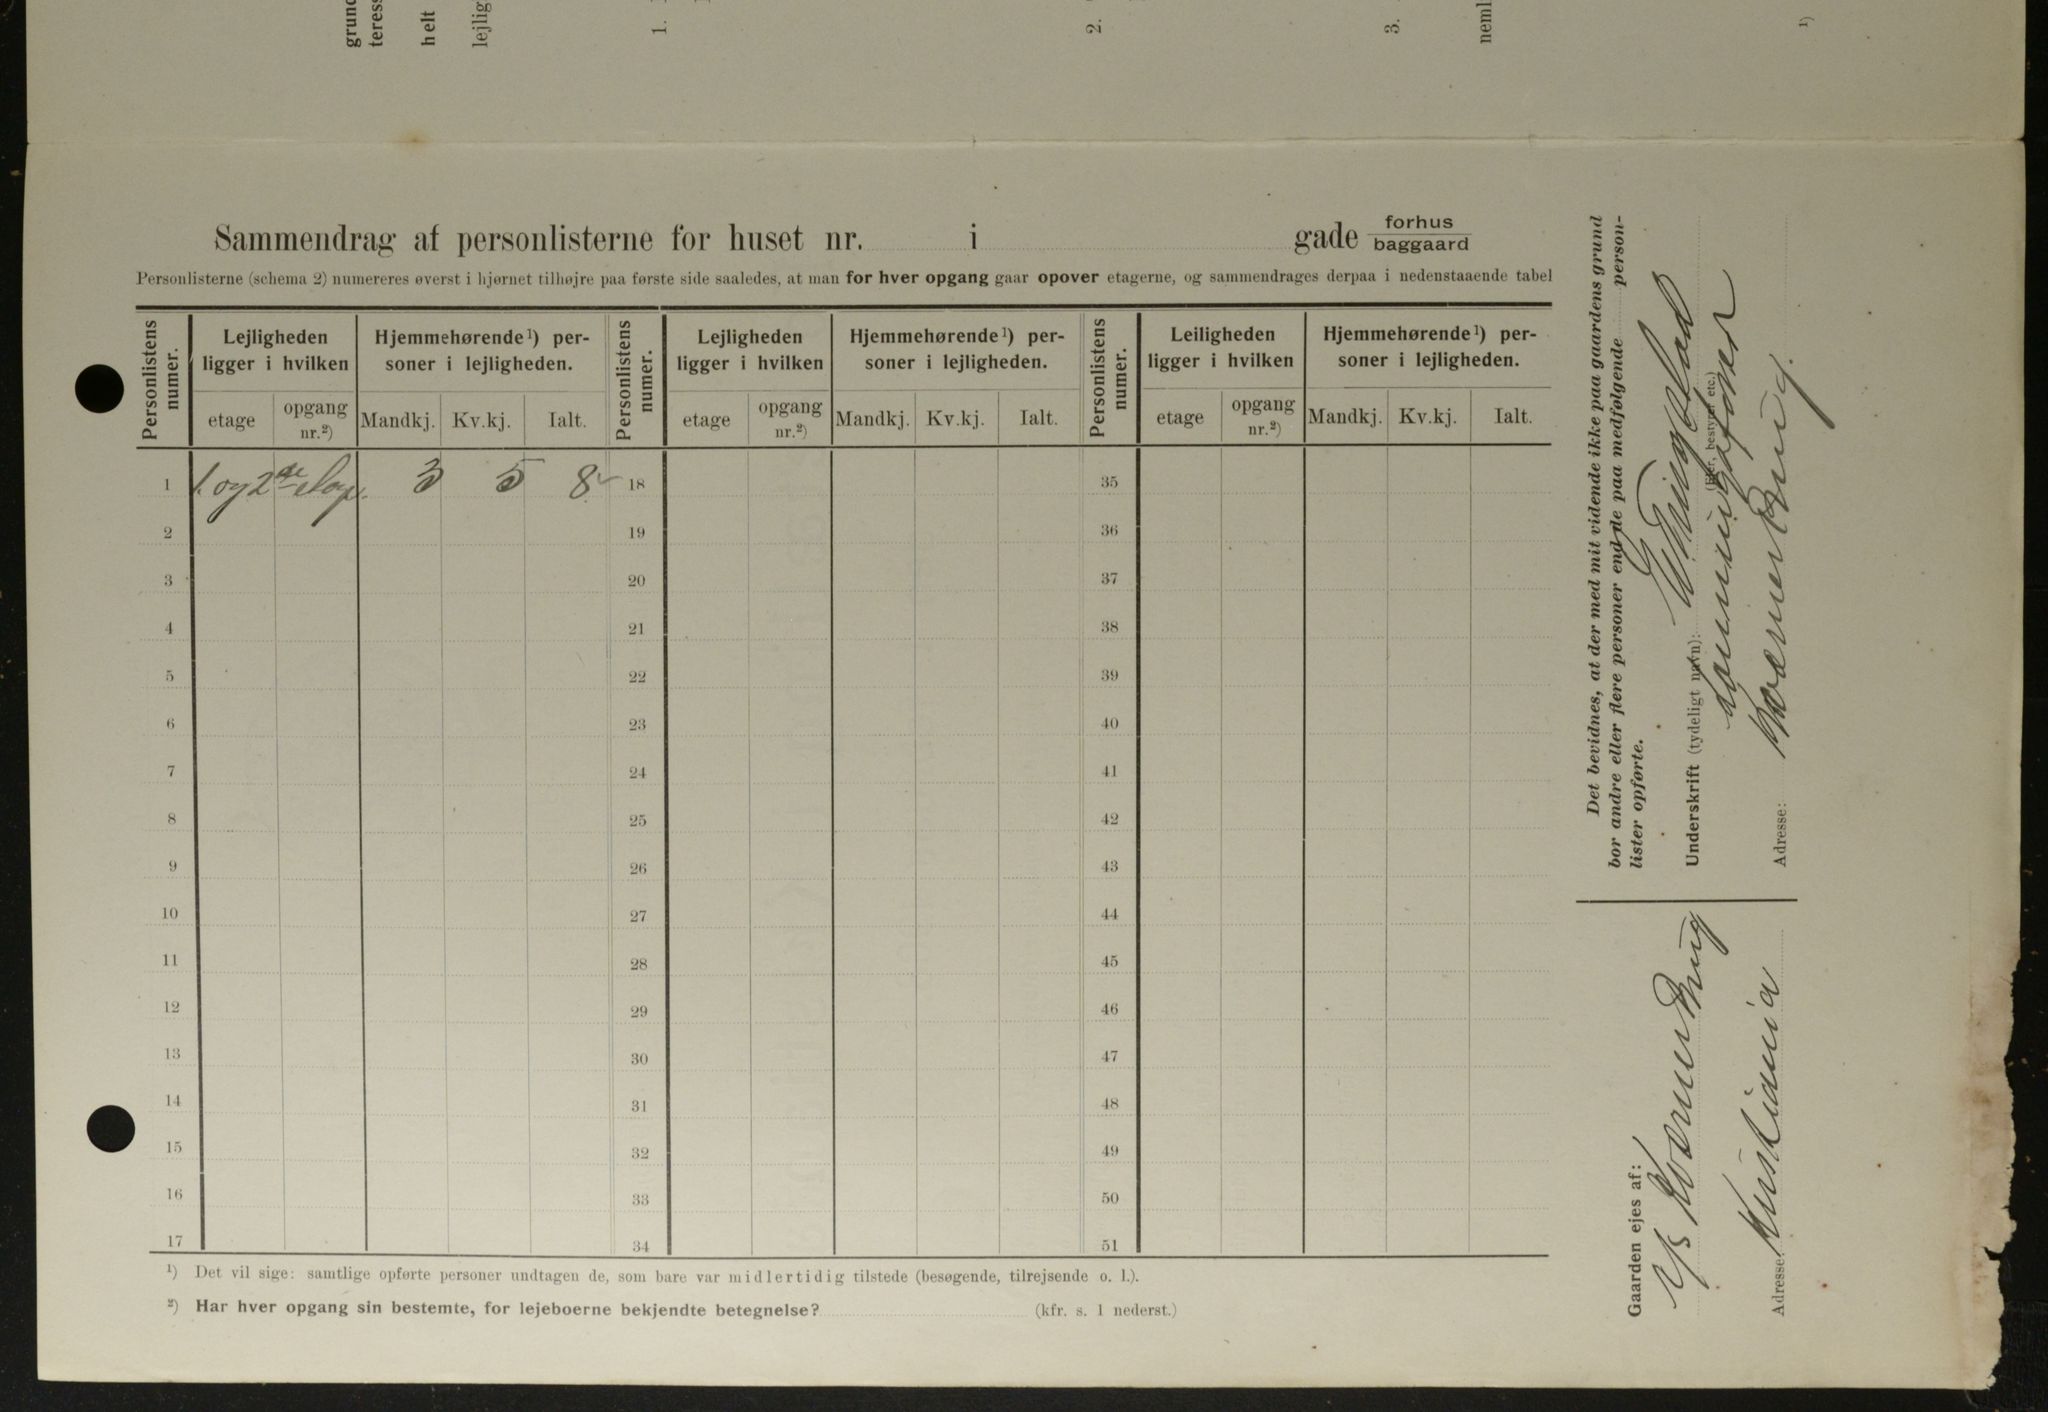 grund
teress
helt
lejlig
1.
2.
3.
neml
1)
Sammendrag af personlisterne for huset nr. i gade forhus
baggaard
Personlisterne (schema 2) numereres øverst i hjørnet tilhøjre paa første side saaledes, at man for hver opgang gaar opover etagerne, og sammendrages derpaa i nedenstaaende tabel
Personlistens numer.
Lejligheden ligger i hvilken
Hjemmehørende¹) personer i lejligheden.
etage
opgang nr.²)
Mandkj.
Kv.kj.
Ialt.
Personlistens numer.
Lejligheden ligger i hvilken
Hjemmehørende¹) personer i lejligheden.
etage
opgang nr.²)
Mandkj.
Kv.kj.
Ialt.
Personlistens numer.
Leiligheden ligger i hvilken
Hjemmehørende¹) personer i lejligheden.
etage
opgang nr.²)
Mandkj.
Kv.kj.
Ialt.
1 1. og 2 3 5 8 18 35
2 19 36
3 20 37
4 21 38
5 22 39
6 23 40
7 24 41
8 25 42
9 26 43
10 27 44
11 28 45
12 29 46
13 30 47
14 31 48
15 32 49
16 33 50
17 34 51
¹) Det vil sige: samtlige opførte personer undtagen de, som bare var midlertidig tilstede (besøgende, tilrejsende o. l.).
²) Har hver opgang sin bestemte, for lejeboerne bekjendte betegnelse? (kfr. s. 1 nederst.)
Det bevidnes, at der med mit vidende ikke paa gaardens grund
bor andre eller flere personer end de paa medfølgende person-
lister opførte.
Underskrift (tydeligt navn):
(Ejer, bestyrer etc.)
Adresse: Kværner Brug.
Gaarden ejes af:
A/S Kværner Brug
Adresse: Kristiania